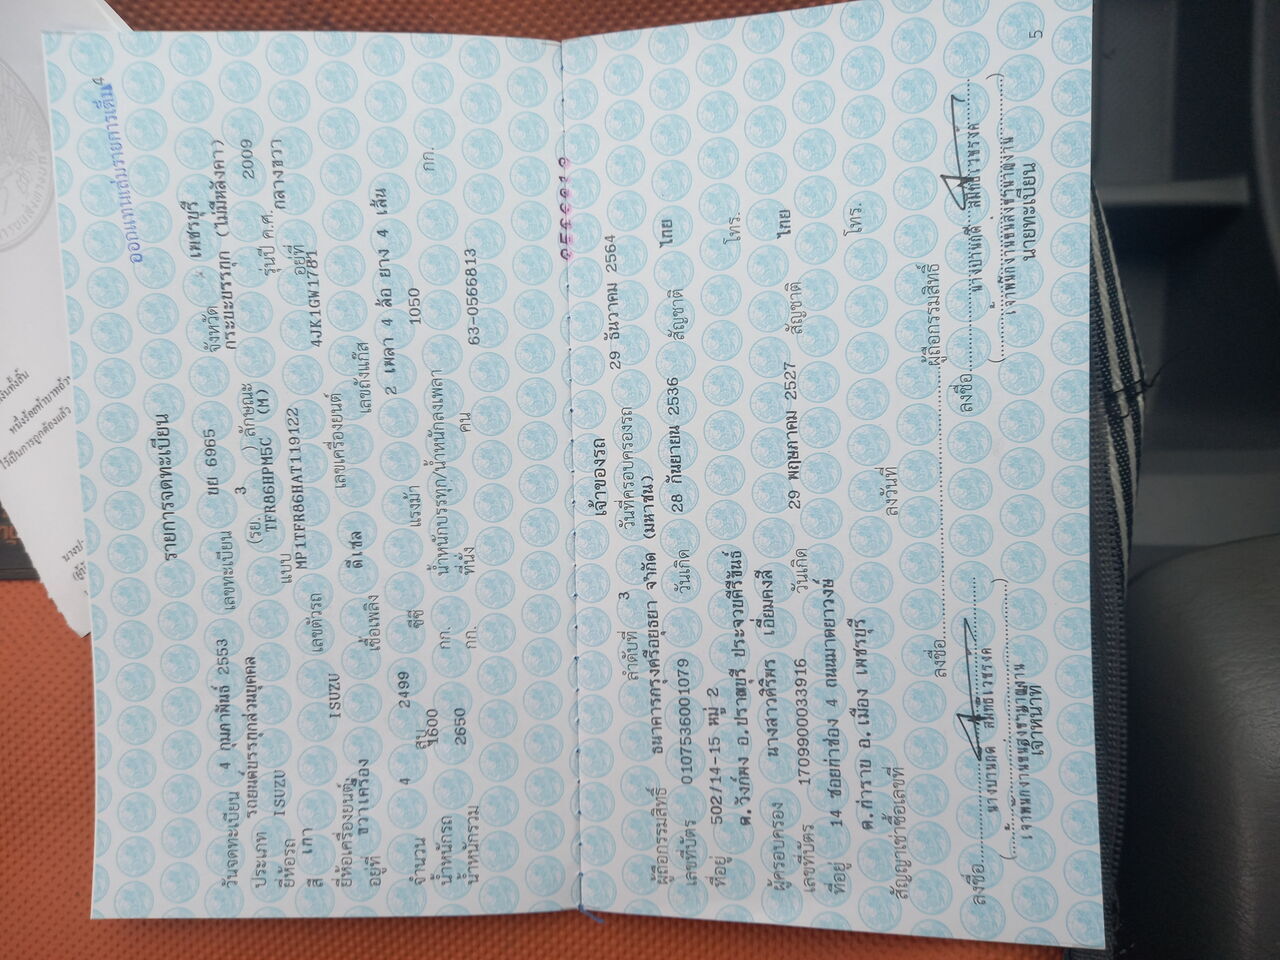 4
ออกแทนเล่มรายการเต็ม
รายการจดทะเบียน
วันจดทะเบียน 4 กุมภาพันธ์ 2553 เลขทะเบียน ขย 6965 จังหวัด เพชรบุรี
ประเภท รถยนต์บรรทุกส่วนบุคคล (รย. 3 ) ลักษณะ กระบะบรรทุก (ไม่มีหลังคา)
ยี่ห้อรถ ISUZU แบบ TFR86HPM5C (M) รุ่นปี ค.ศ. 2009
สี เทา เลขตัวรถ MP1TFR86HAT119122 อยู่ที่ กลางขวา
ยี่ห้อเครื่องยนต์ ISUZU เลขเครื่องยนต์ 4JK1GW1781
อยู่ที่ ขวาเครื่อง เชื้อเพลิง ดีเซล เลขถังแก๊ส
จำนวน 4 สูบ 2499 ซีซี แรงม้า 2 เพลา 4 ล้อ ยาง 4 เส้น
น้ำหนักรถ 1600 กก. น้ำหนักบรรทุก/น้ำหนักลงเพลา 1050 กก.
น้ำหนักรวม 2650 กก. ที่นั่ง คน 63-0566813
เจ้าของรถ
ลำดับที่ 3 วันที่ครอบครองรถ 29 ธันวาคม 2564
ผู้ถือกรรมสิทธิ์ ธนาคารกรุงศรีอยุธยา จำกัด (มหาชน)
เลขที่บัตร 0107536001079 วันเกิด 28 กันยายน 2536 สัญชาติ ไทย
ที่อยู่ 502/14-15 หมู่ 2
ต.วังก์พง อ.ปราณบุรี ประจวบคีรีขันธ์ โทร.
ผู้ครอบครอง นางสาวศิริพร เอี่ยมคงสี
เลขที่บัตร 1709900033916 วันเกิด 29 พฤษภาคม 2527 สัญชาติ ไทย
ที่อยู่ 14 ซอยท่าช่อง 4 ถนนมาตยาวงษ์
ต.ท่าราบ อ.เมือง เพชรบุรี โทร.
สัญญาเช่าซื้อเลขที่ ลงวันที่
ลงชื่อ ผู้ถือกรรมสิทธิ์
ลงชื่อ ลงชื่อ
เจ้าพนักงานขนส่งชำนาญงาน เจ้าพนักงานขนส่งชำนาญงาน
เจ้าหน้าที่ นายทะเบียน
5